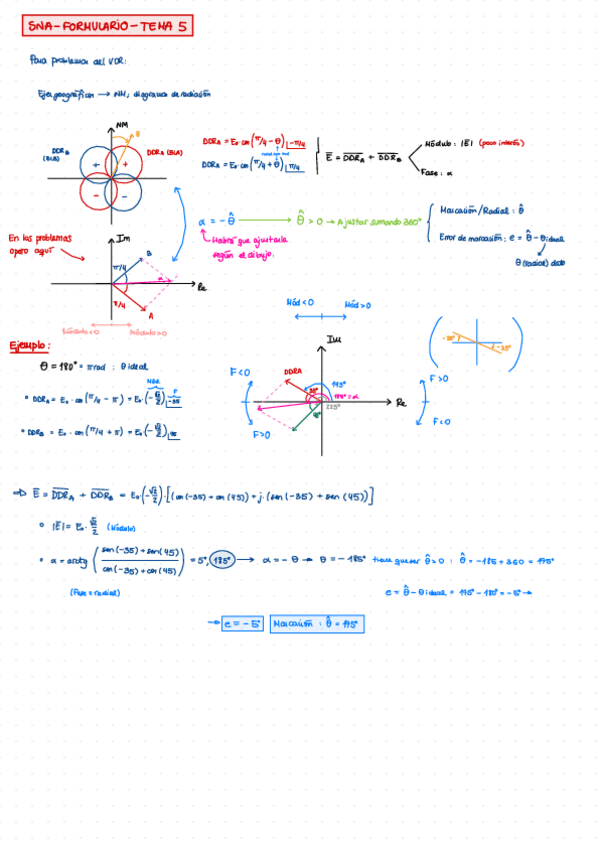 SNA - FORMULARIO - TEMA 5
Para problemas del VOR:
Ejes geográficos → NM; diagrama de radiación
NM
θ
DDR_B (BLB)
DDR_A (BLA)
+ +
- -
DDR_A = E₀·cos(π/4 - θ) |-π/4
radial con (rad)
DDR_A = E₀·cos(π/4 + θ) |π/4
Ē = DDR_A + DDR_B
Módulo: |Ē| (poco interés)
Fase: α
α = -θ̂ → θ̂ > 0 → Ajustar sumando 360°
Habrá que ajustarla según el dibujo.
Marcación/Radial: θ̂
Error de marcación: e = θ̂ - θideal
θ(radial) dato
En los problemas
opero aquí
Im
B
π/4
α
Re
π/4
A
Módulo<0 Módulo>0
Mód<0 Mód>0
Im
Ejemplo:
θ = 180° = π rad : θ ideal
Mód. F
• DDR_A = E₀·cos(π/4 - π) = E₀·(-√2/2) |-35
• DDR_B = E₀·cos(π/4 + π) = E₀·(-√2/2) |45
F<0
F>0
DDRA
35°
145°
185° = α
45°
225°
Re
F>0
F<0
-35°
⇒ Ē = DDR_A + DDR_B = E₀·(-√2/2)·[(cos(-35) + cos(45)) + j·(sen(-35) + sen(45))]
• |Ē| = E₀·√2/2 (Módulo)
• α = arctg((sen(-35) + sen(45))/(cos(-35) + cos(45))) = 5°, 185° → α = -θ → θ = -185° tiene que ser θ̂>0 : θ̂ = -185 + 360 = 175°
(Fase = radial)
e = θ̂ - θideal = 175° - 180° = -5° →
→ e = -5° Marcación: θ̂ = 175°